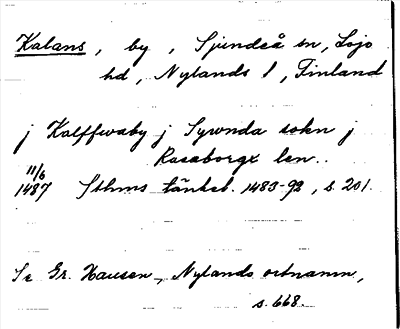 Kalans, by, Sjundeå sn, Lojo
hd, Nylands l, Finland
j Kalffwaby j Sywnda sokn j
Raseborgx len..
11/6
1487 Sthms tänkeb. 1483-92, s. 201.
Se Gr. Hausen, Nylands ortnamn,
s. 668.